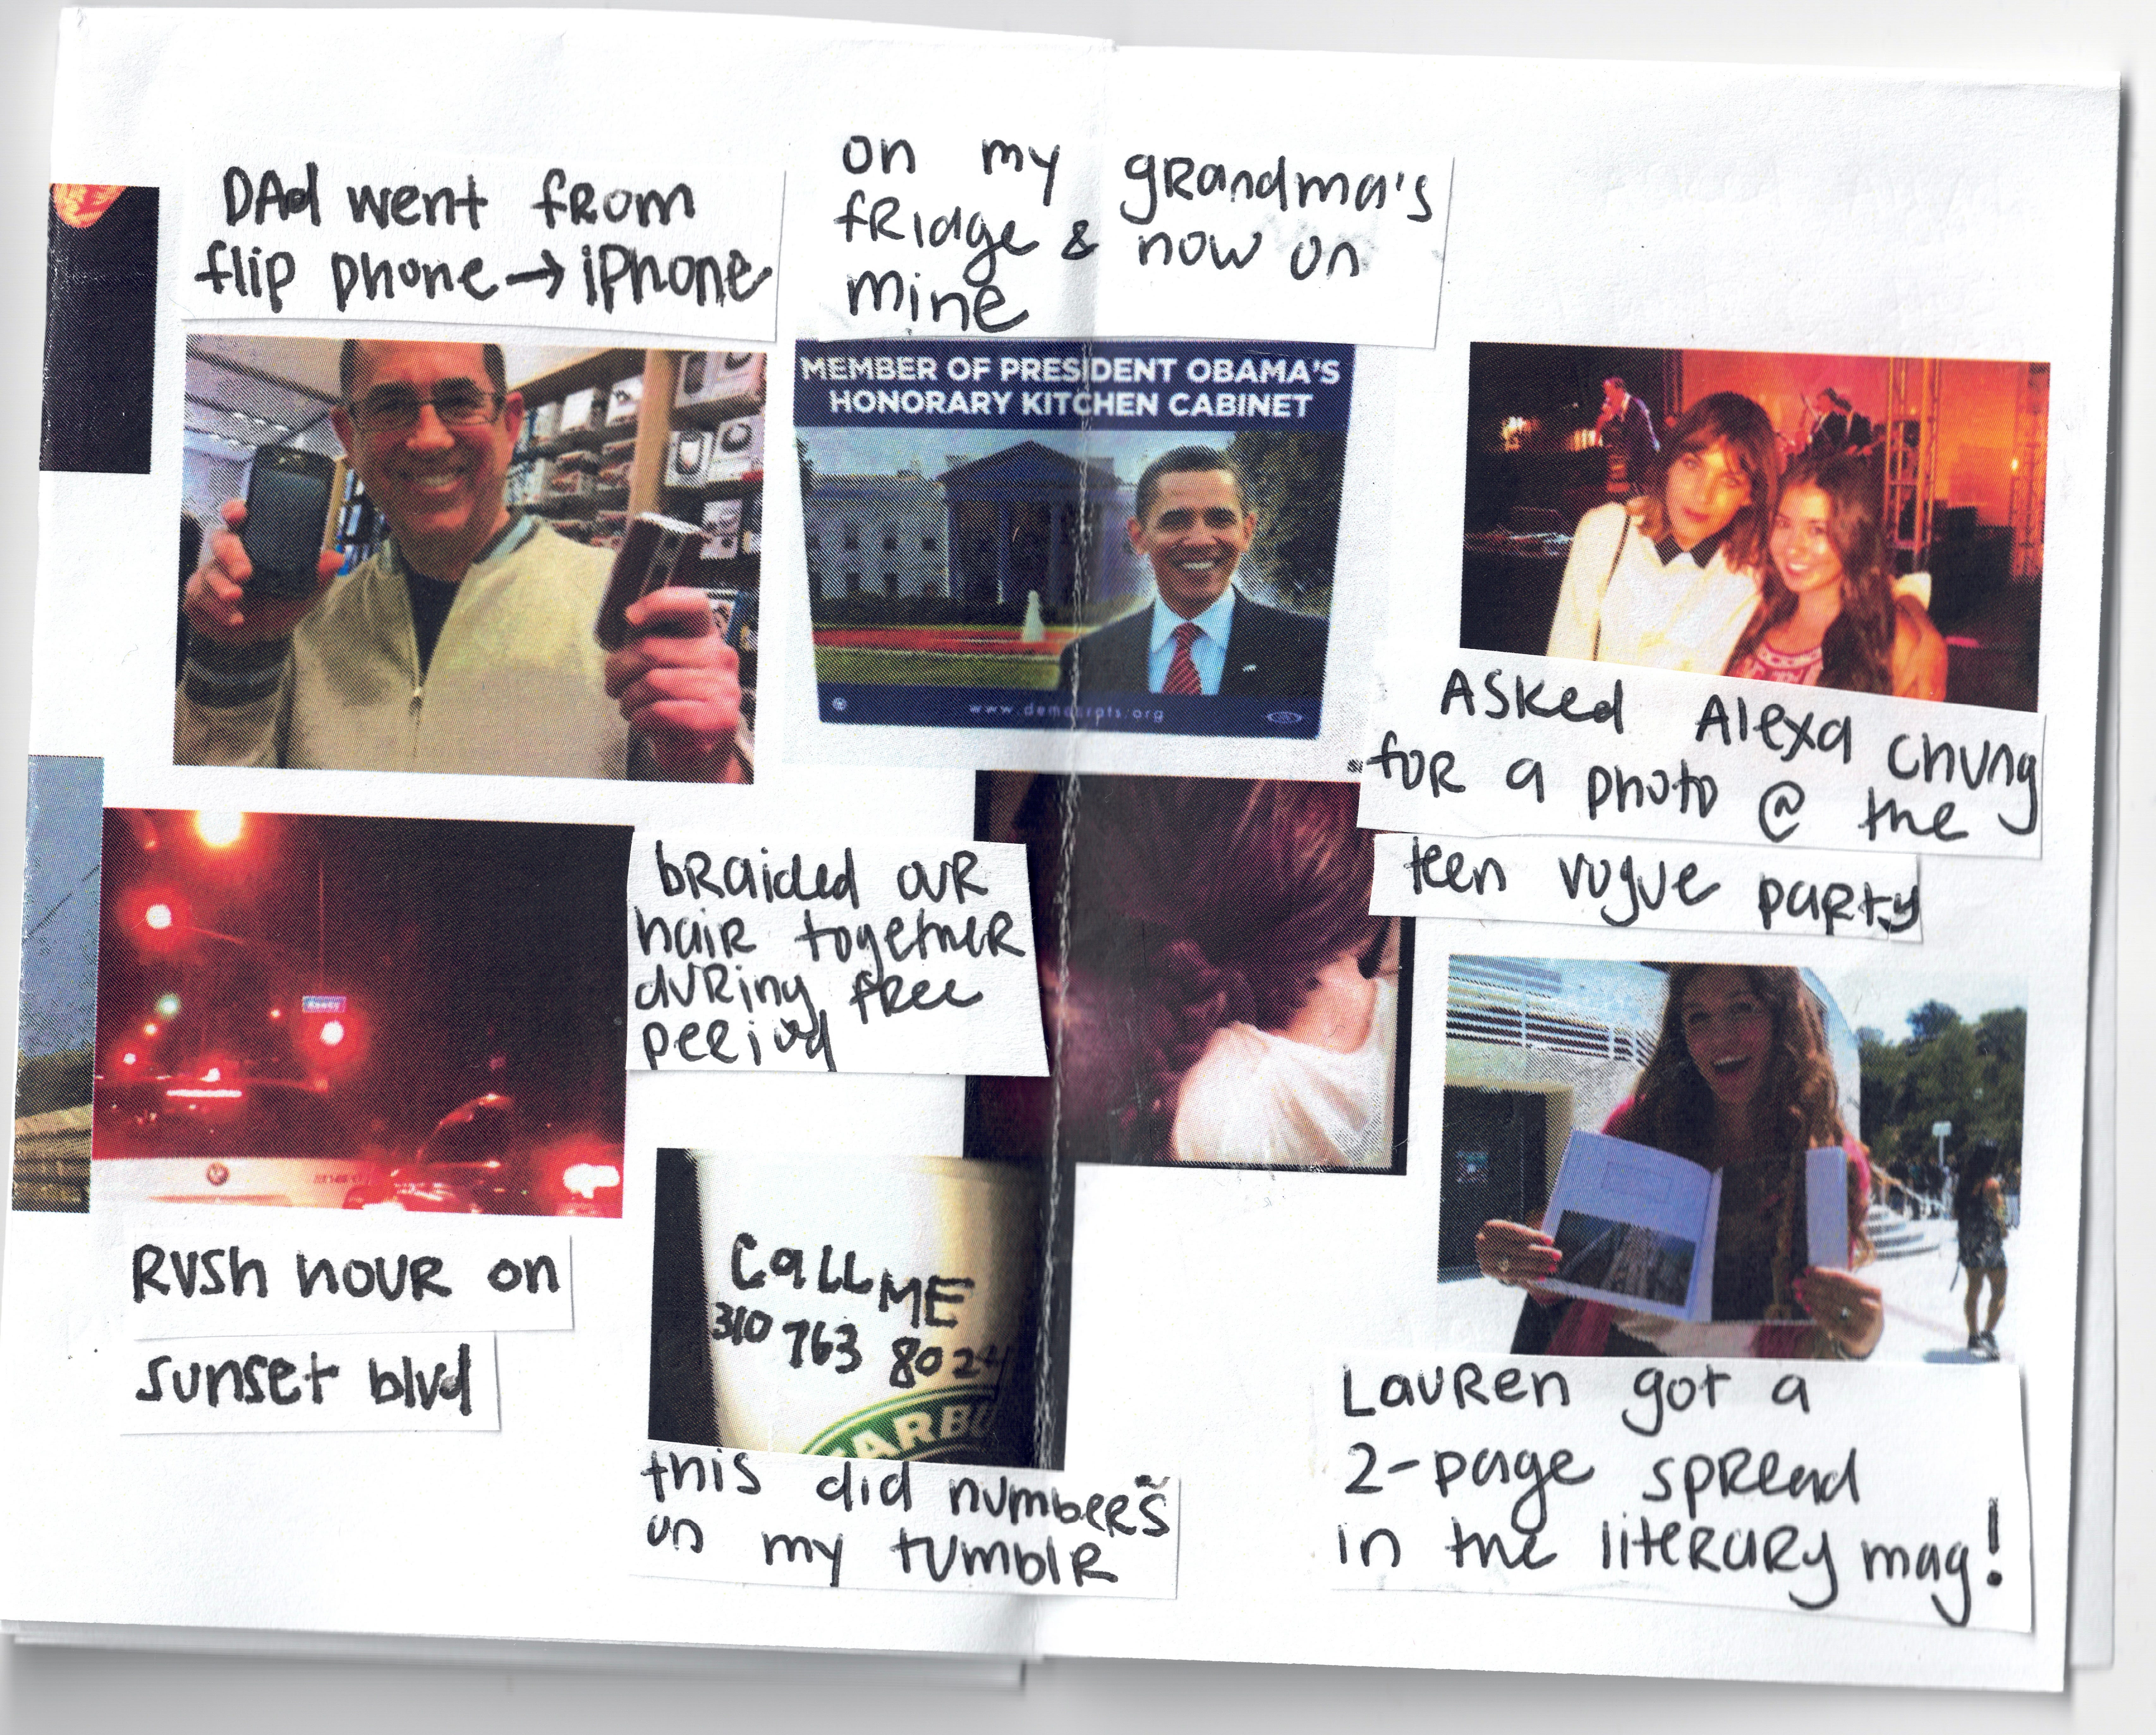 DAd went from
flip phone → iphone
on my grandma's
fridge & now on
mine
MEMBER OF PRESIDENT OBAMA'S
HONORARY KITCHEN CABINET
www.democrats.org
Asked Alexa Chung
for a photo @ the
teen vogue party
braided our
hair together
during free
period
Rush hour on
sunset blvd
Call ME
310 763 8024
ARBU
this did numbers
on my tumblr
Lauren got a
2-page spread
in the literary mag!